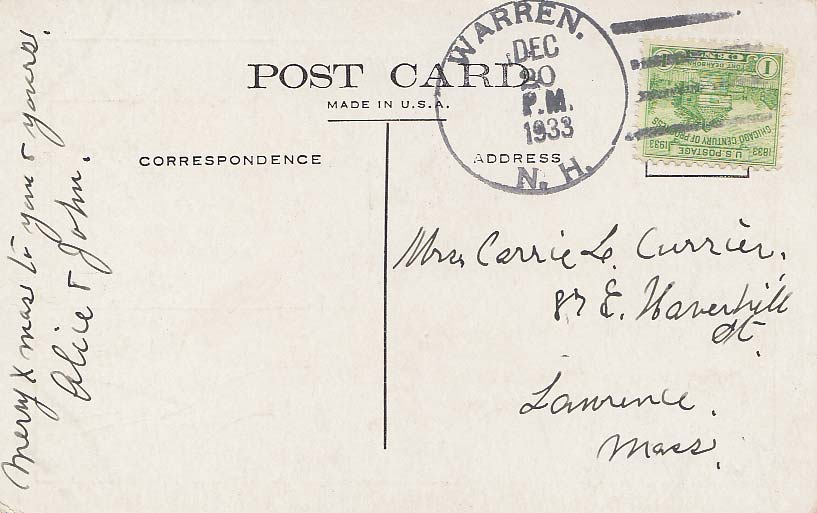 POST CARD
MADE IN U.S.A.
CORRESPONDENCE
ADDRESS
WARREN.
DEC
20
P.M.
1933
N. H.
1
FORT DEARBORN
CHICAGO CENTURY OF PROGRESS
1833 1933
U.S. POSTAGE
Merry Xmas to you & yours.
Alice & John.
Mrs Carrie L. Currier.
87 E. Haverhill
St.
Lawrence.
Mass.